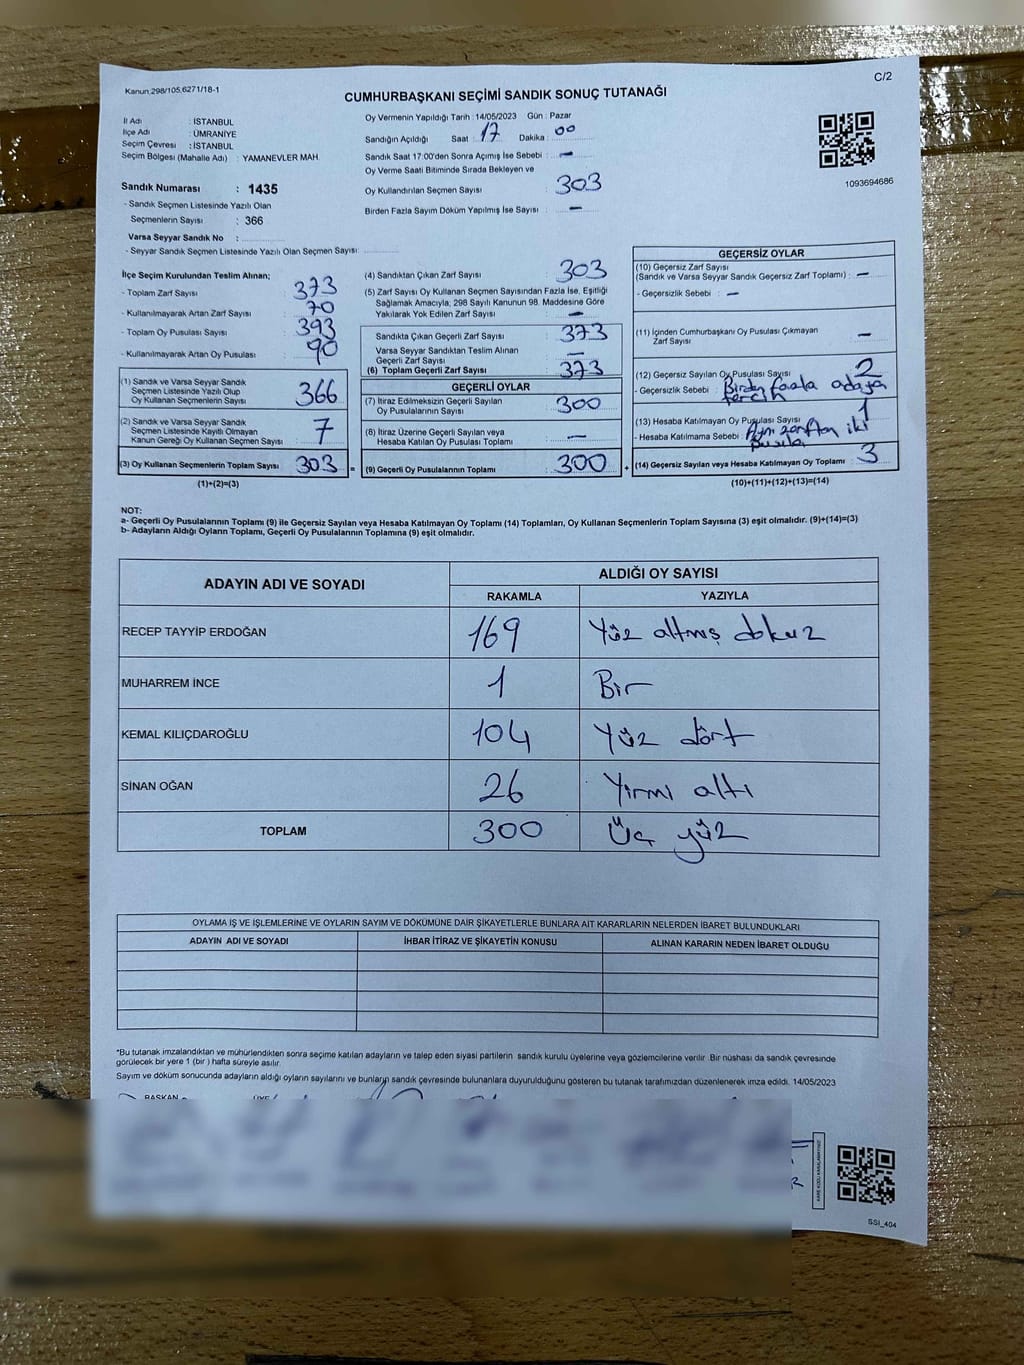 Kanun 298/105,6271/18-1
C/2
CUMHURBAŞKANI SEÇİMİ SANDIK SONUÇ TUTANAĞI
1093694686
İl Adı : İSTANBUL
İlçe Adı : ÜMRANİYE
Seçim Çevresi : İSTANBUL
Seçim Bölgesi (Mahalle Adı) : YAMANEVLER MAH.
Sandık Numarası : 1435
- Sandık Seçmen Listesinde Yazılı Olan
Seçmenlerin Sayısı : 366
Varsa Seyyar Sandık No :
- Seyyar Sandık Seçmen Listesinde Yazılı Olan Seçmen Sayısı:
Oy Vermenin Yapıldığı Tarih : 14/05/2023 Gün : Pazar
Sandığın Açıldığı Saat : 17 Dakika : 00
Sandık Saat 17:00'den Sonra Açımış İse Sebebi : —
Oy Verme Saati Bitiminde Sırada Bekleyen ve
Oy Kullandırılan Seçmen Sayısı : 303
Birden Fazla Sayım Döküm Yapılmış İse Sayısı : —
İlçe Seçim Kurulundan Teslim Alınan;
- Toplam Zarf Sayısı : 373
- Kullanılmayarak Artan Zarf Sayısı : 70
- Toplam Oy Pusulası Sayısı : 393
- Kullanılmayarak Artan Oy Pusulası : 90
(1) Sandık ve Varsa Seyyar Sandık
Seçmen Listesinde Yazılı Olup
Oy Kullanan Seçmenlerin Sayısı : 366
(2) Sandık ve Varsa Seyyar Sandık
Seçmen Listesinde Kayıtlı Olmayan
Kanun Gereği Oy Kullanan Seçmen Sayısı : 7
(3) Oy Kullanan Seçmenlerin Toplam Sayısı : 303 =
(1)+(2)=(3)
(4) Sandıktan Çıkan Zarf Sayısı : 303
(5) Zarf Sayısı Oy Kullanan Seçmen Sayısından Fazla İse, Eşitliği
Sağlamak Amacıyla, 298 Sayılı Kanunun 98. Maddesine Göre
Yakılarak Yok Edilen Zarf Sayısı : —
Sandıkta Çıkan Geçerli Zarf Sayısı : 373
Varsa Seyyar Sandıktan Teslim Alınan
Geçerli Zarf Sayısı : —
(6) Toplam Geçerli Zarf Sayısı : 373
GEÇERLİ OYLAR
(7) İtiraz Edilmeksizin Geçerli Sayılan
Oy Pusulalarının Sayısı : 300
(8) İtiraz Üzerine Geçerli Sayılan veya
Hesaba Katılan Oy Pusulası Toplamı : —
(9) Geçerli Oy Pusulalarının Toplamı : 300 +
GEÇERSİZ OYLAR
(10) Geçersiz Zarf Sayısı
(Sandık ve Varsa Seyyar Sandık Geçersiz Zarf Toplamı) : —
- Geçersizlik Sebebi : —
(11) İçinden Cumhurbaşkanı Oy Pusulası Çıkmayan
Zarf Sayısı : —
(12) Geçersiz Sayılan Oy Pusulası Sayısı : 2
- Geçersizlik Sebebi : Birden fazla adaya
tercih
(13) Hesaba Katılmayan Oy Pusulası Sayısı : 1
- Hesaba Katılmama Sebebi : Aynı zarftan iki
pusula
(14) Geçersiz Sayılan veya Hesaba Katılmayan Oy Toplamı : 3
(10)+(11)+(12)+(13)=(14)
NOT:
a- Geçerli Oy Pusulalarının Toplamı (9) ile Geçersiz Sayılan veya Hesaba Katılmayan Oy Toplamı (14) Toplamları, Oy Kullanan Seçmenlerin Toplam Sayısına (3) eşit olmalıdır. (9)+(14)=(3)
b- Adayların Aldığı Oyların Toplamı, Geçerli Oy Pusulalarının Toplamına (9) eşit olmalıdır.
ADAYIN ADI VE SOYADI ALDIĞI OY SAYISI
RAKAMLA YAZIYLA
RECEP TAYYİP ERDOĞAN 169 Yüz altmış dokuz
MUHARREM İNCE 1 Bir
KEMAL KILIÇDAROĞLU 104 Yüz dört
SİNAN OĞAN 26 Yirmi altı
TOPLAM 300 Üç yüz
OYLAMA İŞ VE İŞLEMLERİNE VE OYLARIN SAYIM VE DÖKÜMÜNE DAİR ŞİKAYETLERLE BUNLARA AİT KARARLARIN NELERDEN İBARET BULUNDUKLARI
ADAYIN ADI VE SOYADI İHBAR İTİRAZ VE ŞİKAYETİN KONUSU ALINAN KARARIN NEDEN İBARET OLDUĞU
*Bu tutanak imzalandıktan ve mühürlendikten sonra seçime katılan adayların ve talep eden siyasi partilerin sandık kurulu üyelerine veya gözlemcilerine verilir. Bir nüshası da sandık çevresinde
görülecek bir yere 1 (bir ) hafta süreyle asılır.
Sayım ve döküm sonucunda adayların aldığı oyların sayılarını ve bunların sandık çevresinde bulunanlara duyurulduğunu gösteren bu tutanak tarafımızdan düzenlenerek imza edildi. 14/05/2023
BAŞKAN
SSİ_404